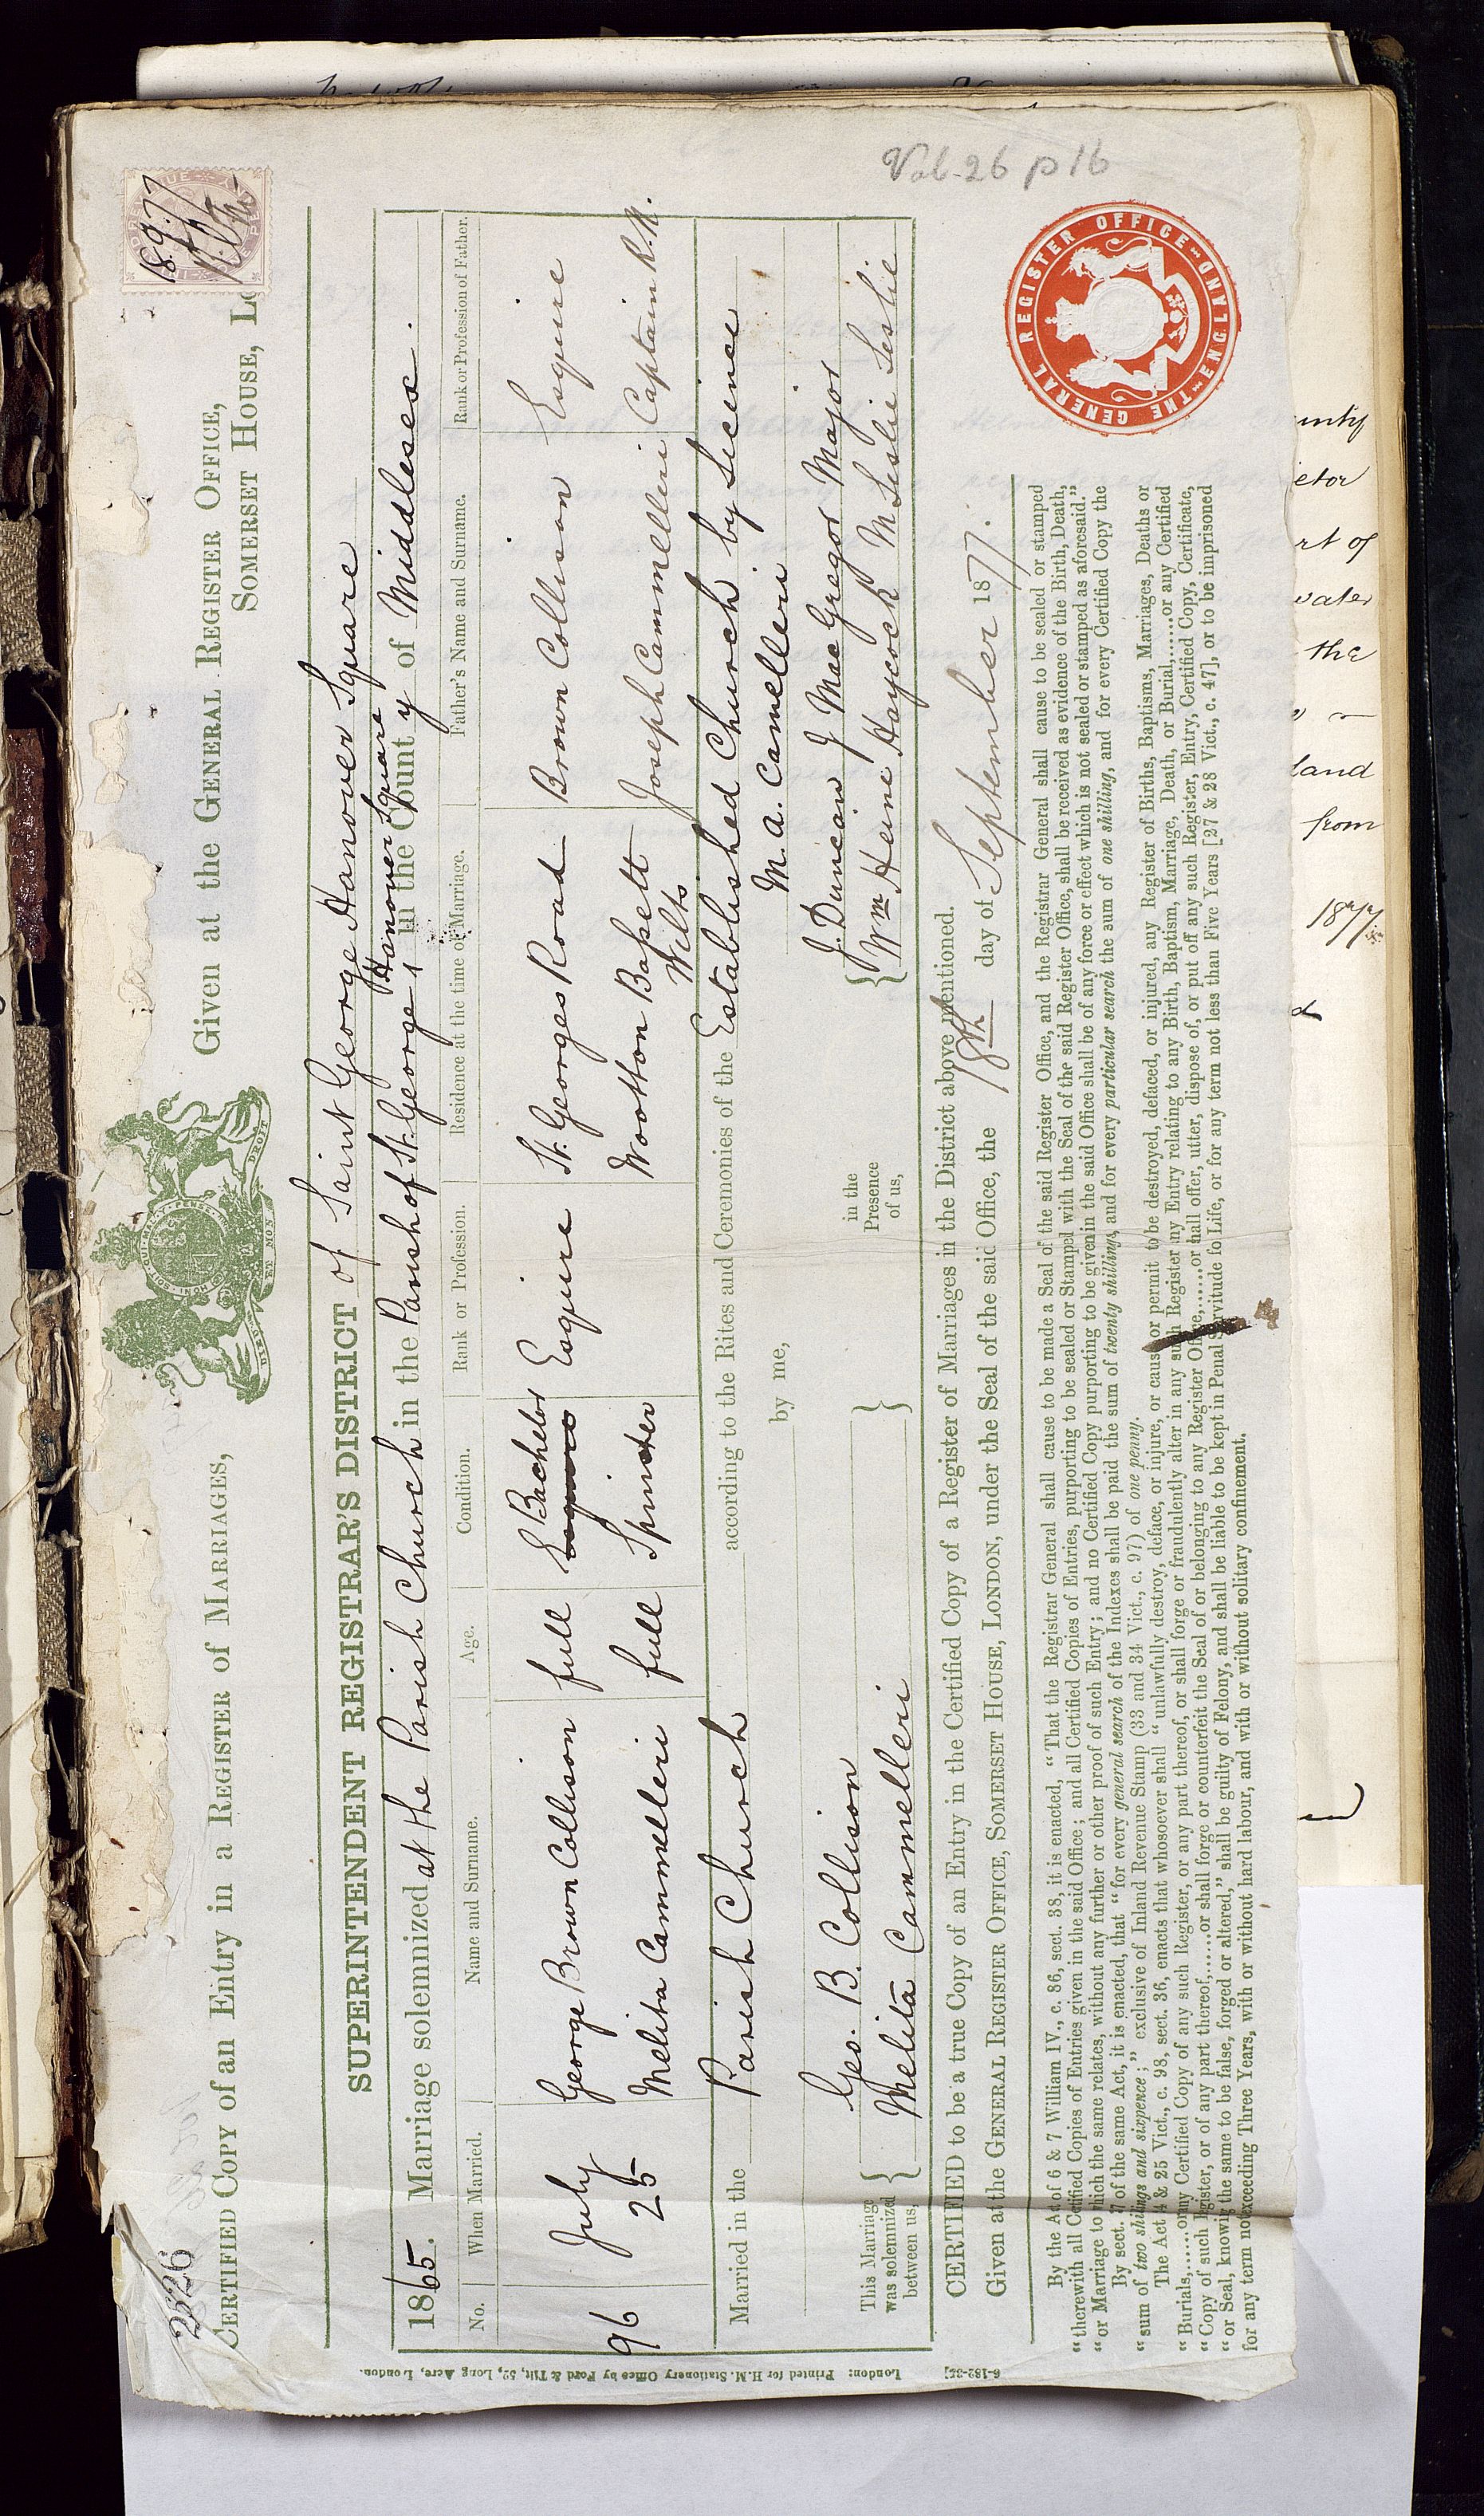 2526
Vol. 26 p 16
18.9.77
CERTIFIED COPY of an Entry in a REGISTER OF MARRIAGES,
Given at the GENERAL REGISTER OFFICE,
SOMERSET HOUSE, Lo
SUPERINTENDENT REGISTRAR'S DISTRICT of Saint George Hanover Square
1865. Marriage solemnized at the Parish Church in the Parish of St. George Hanover Square in the County of Middlesex.
No. When Married. Name and Surname. Age. Condition. Rank or Profession. Residence at the time of Marriage. Father's Name and Surname. Rank or Profession of Father.
96 July 25 George Brown Collison full Bachelor Esquire St. Georges Road Brown Collison Esquire
Melita Cammelleri full Spinster Wootton Bassett Wilts Joseph Cammelleri Captain R.N.
Married in the Parish Church according to the Rites and Ceremonies of the Established Church by Licence
by me, M. A. Camelleri
This Marriage was solemnized between us, { Geo. B. Collison
Melita Cammelleri }
in the Presence of us, { J. Duncan J MacGregor Major
Wm Heine Haycock M Leslie Leslie
CERTIFIED to be a true Copy of an Entry in the Certified Copy of a Register of Marriages in the District above mentioned.
Given at the GENERAL REGISTER OFFICE, SOMERSET HOUSE, LONDON, under the Seal of the said Office, the 18th day of September 1877.
By the Act of 6 & 7 William IV., c. 86, sect. 38, it is enacted, "That the Registrar General shall cause to be made a Seal of the said Register Office, and the Registrar General shall cause to be sealed or stamped
"therewith all Certified Copies of Entries given in the said Office; and all Certified Copies of Entries, purporting to be sealed or Stamped with the Seal of the said Register Office, shall be received as evidence of the Birth, Death,
"or Marriage to which the same relates, without any further or other proof of such Entry; and no Certified Copy purporting to be given in the said Office shall be of any force or effect which is not sealed or stamped as aforesaid."
By sect. 37 of the same Act, it is enacted, that "for every general search of the Indexes shall be paid the sum of twenty shillings, and for every particular search the sum of one shilling, and for every Certified Copy the
"sum of two shillings and sixpence;" exclusive of Inland Revenue Stamp (33 and 34 Vict., c. 97) of one penny.
The Act 24 & 25 Vict., c. 98, sect. 36, enacts that whosoever shall "unlawfully destroy, deface, or injure, or cause or permit to be destroyed, defaced, or injured, any Register of Births, Baptisms, Marriages, Deaths or
"Burials,......or any Certified Copy of any such Register, or any part thereof, or shall forge or fraudulently alter in any such Register any Entry relating to any Birth, Baptism, Marriage, Death, or Burial,......or any Certified
"Copy of such Register, or of any part thereof,......or shall forge or counterfeit the Seal of or belonging to any Register Office,......or shall offer, utter, dispose of, or put off any such Register, Entry, Certified Copy, Certificate,
"or Seal, knowing the same to be false, forged or altered," shall be guilty of Felony, and shall be liable to be kept in Penal Servitude for Life, or for any term not less than Five Years [27 & 28 Vict., c. 47], or to be imprisoned
for any term not exceeding Three Years, with or without hard labour, and with or without solitary confinement.
THE GENERAL REGISTER OFFICE ENGLAND
London: Printed for H.M. Stationery Office by Ford & Tilt, 52, Long Acre, London.
rt of
the
land
from
1877